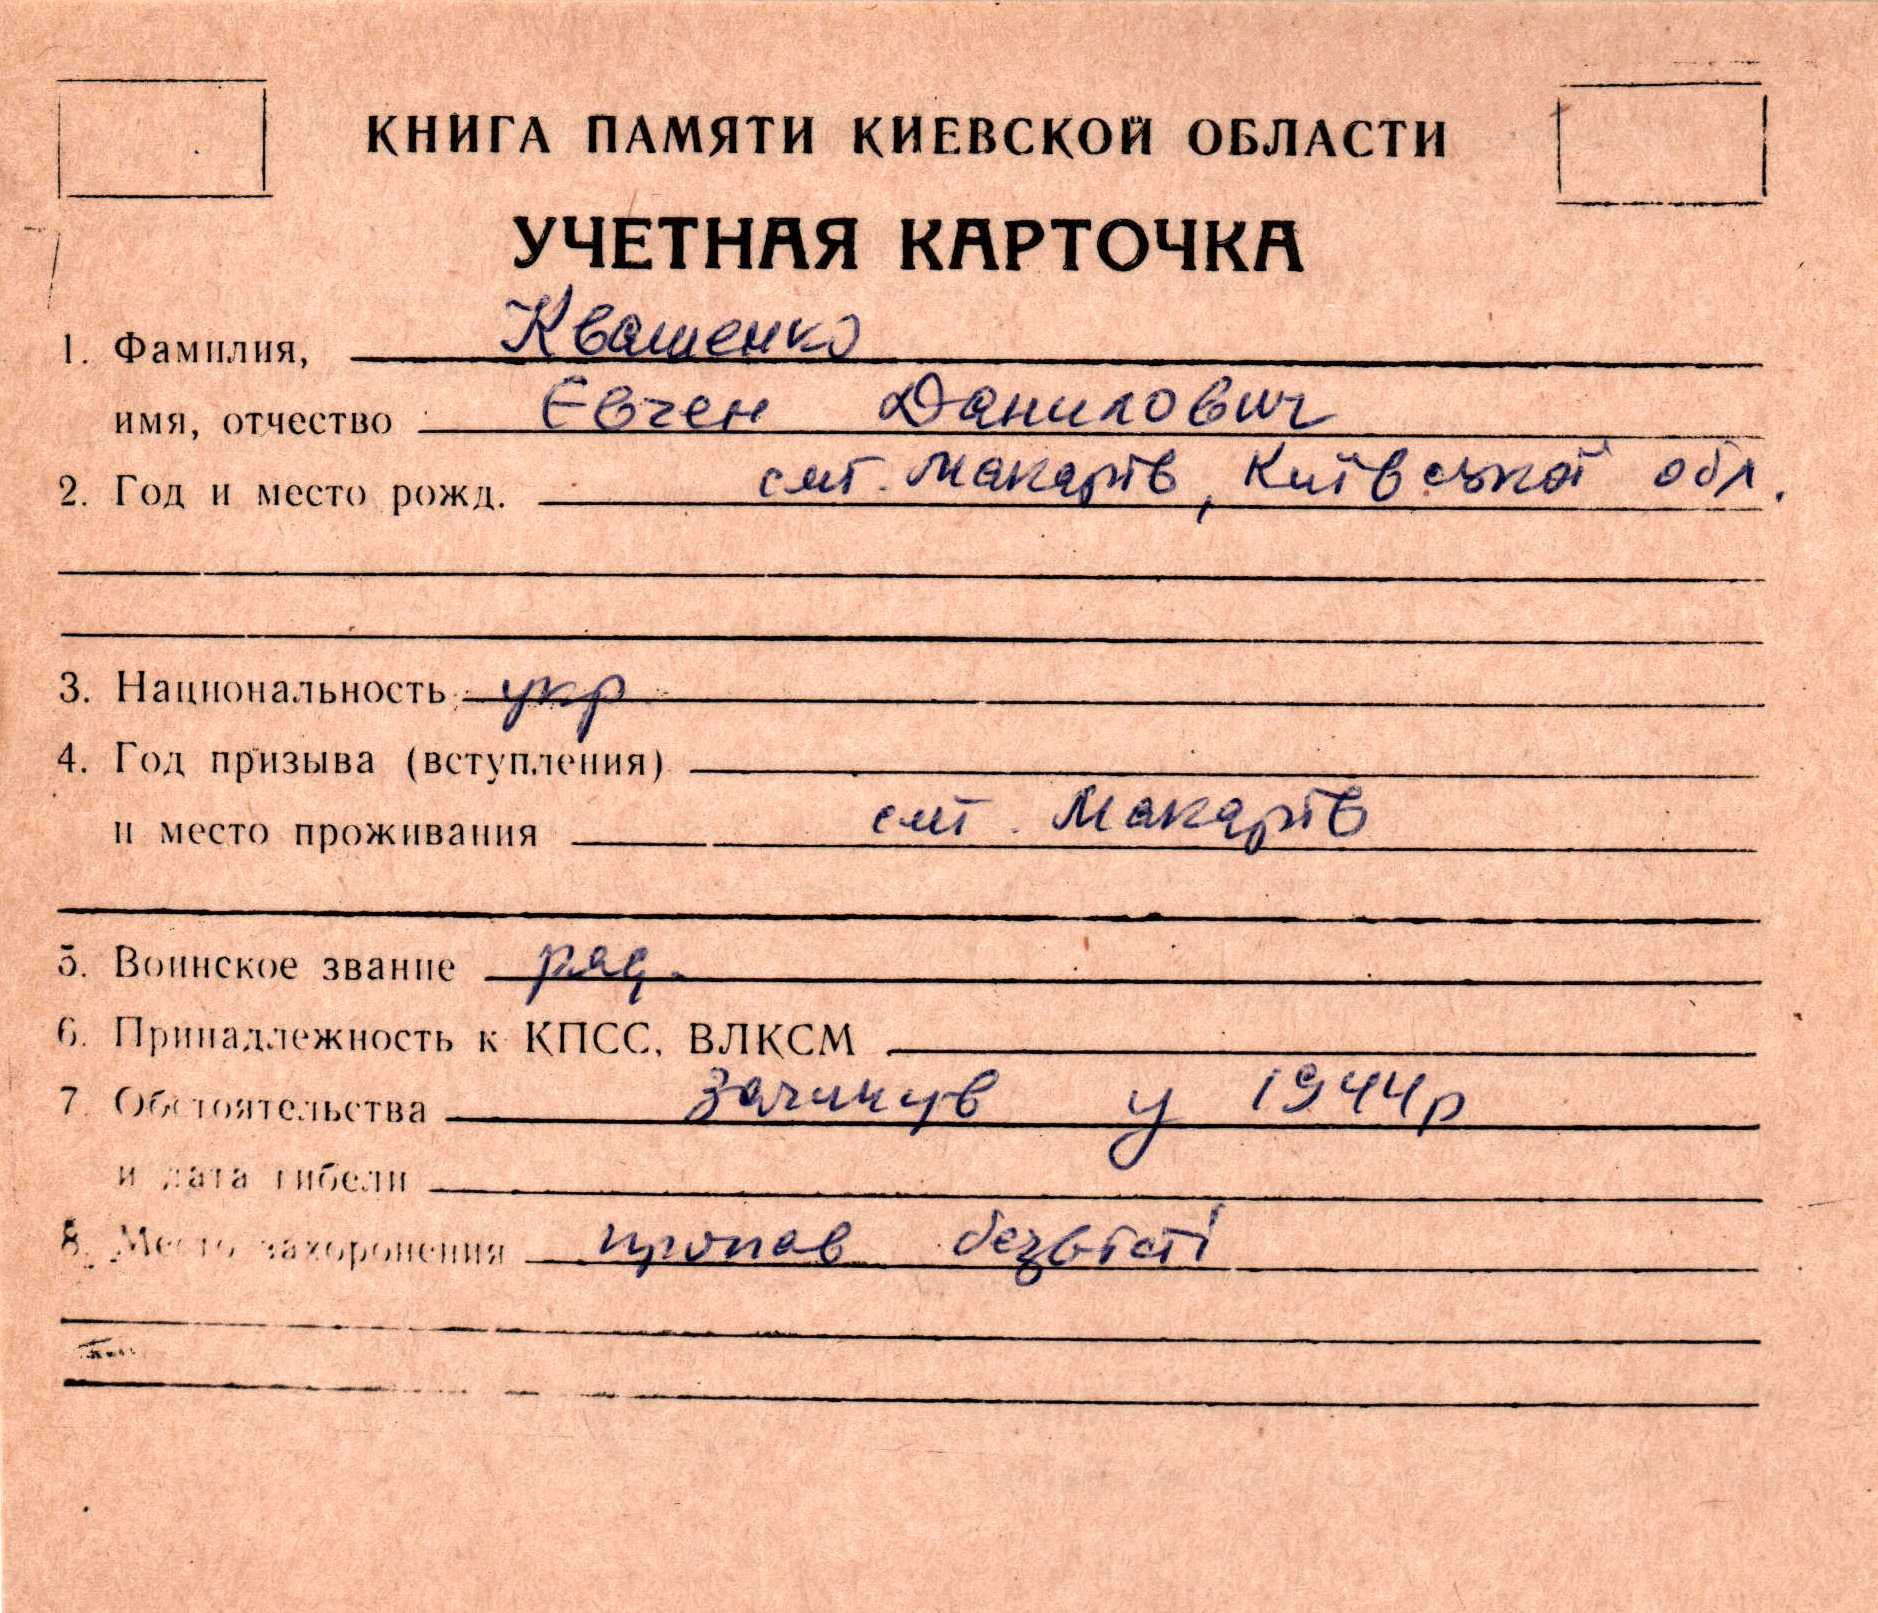 КНИГА ПАМЯТИ КИЕВСКОЙ ОБЛАСТИ
УЧЕТНАЯ КАРТОЧКА
1. Фамилия, Квашенко
имя, отчество Євген Данилович
2. Год и место рожд. смт. Макарів, Київської обл.
3. Национальность укр
4. Год призыва (вступления)
и место проживания смт. Макарів
5. Воинское звание ряд.
6. Принадлежность к КПСС, ВЛКСМ
7. Обстоятельства загинув у 1944р
и дата гибели
8. Место захоронения пропав безвісті